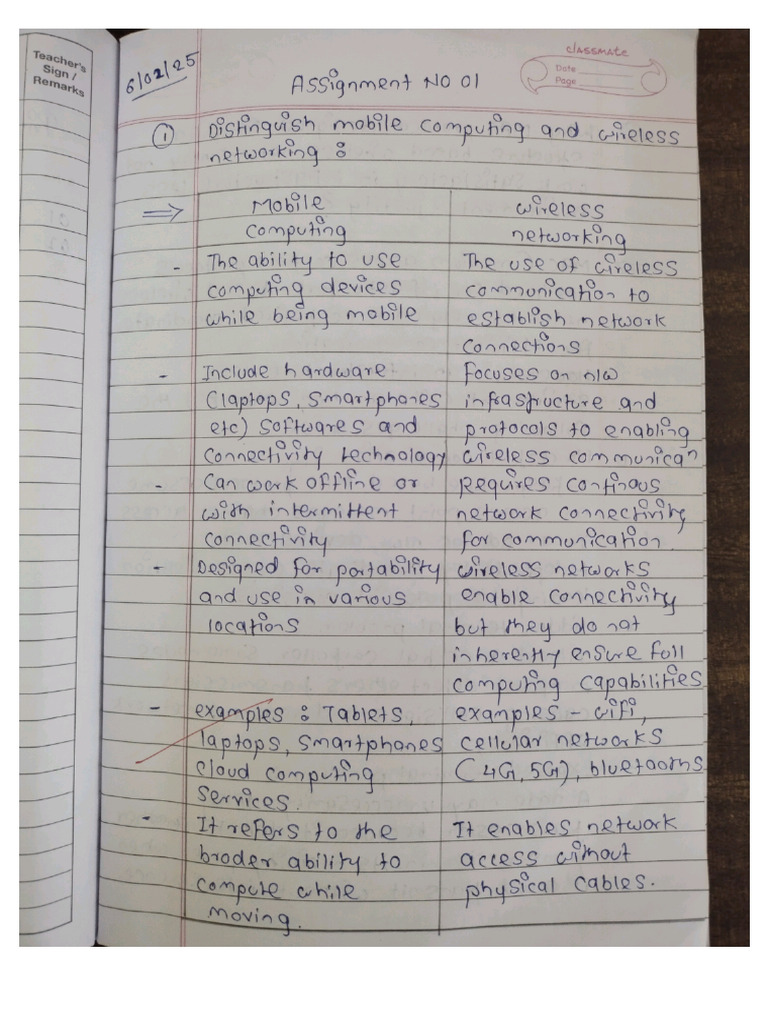 Teacher's
Sign /
Remarks
6/02/25
Assignment No 01
classmate
Date
Page
① Distinguish mobile computing and wireless
networking :
⇒ Mobile wireless
computing networking
- The ability to use The use of wireless
computing devices communication to
while being mobile establish network
connections
- Include hardware focuses on n/w
(laptops, smartphones infrastructure and
etc) softwares and protocols to enabling
connectivity technology wireless communican
- Can work offline or Requires continous
with intermittent network connectivity
connectivity for communication.
- Designed for portability wireless networks
and use in various enable connectivity
locations but they do not
inherently ensure full
computing capabilities
- examples : Tablets, examples - wifi,
laptops, smartphones cellular networks
cloud computing (4G, 5G), bluetooths
services
- It refers to the It enables network
broder ability to access without
compute while physical cables.
moving.